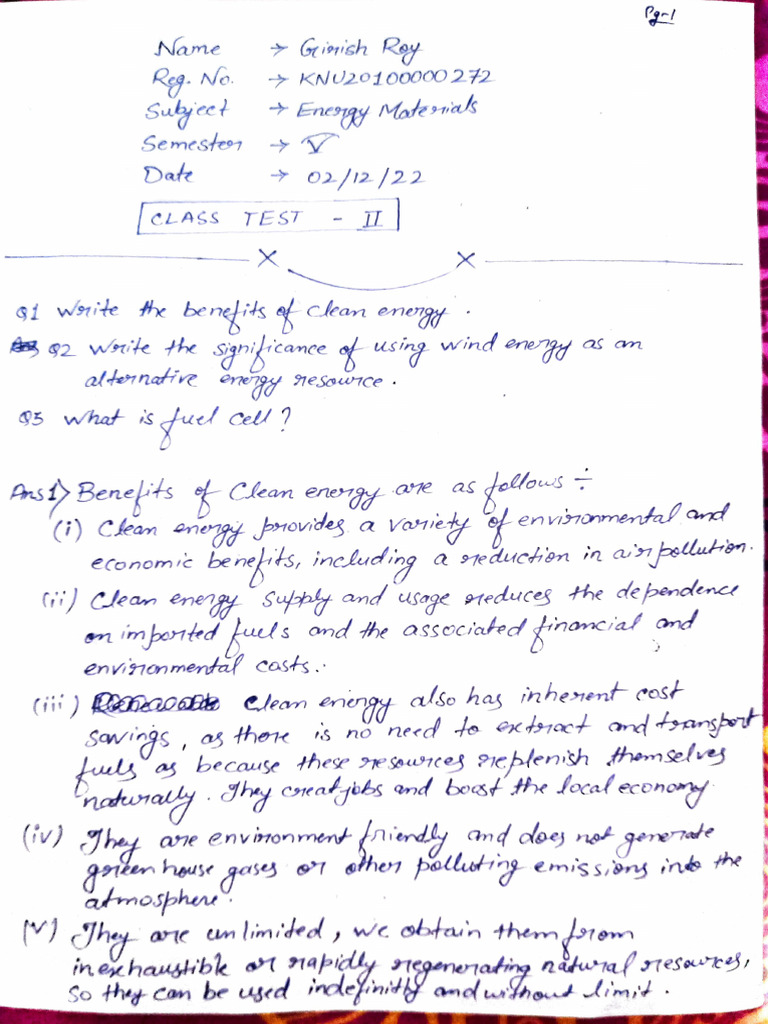 Pg-1
Name → Girish Roy
Reg. No. → KNU20100000272
Subject → Energy Materials
Semester → V
Date → 02/12/22
CLASS TEST - II
Q1 Write the benefits of clean energy.
Q2 Write the significance of using wind energy as an
alternative energy resource.
Q3 What is fuel cell?
Ans1) Benefits of Clean energy are as follows ÷
(i) Clean energy provides a variety of environmental and
economic benefits, including a reduction in air pollution.
(ii) Clean energy supply and usage reduces the dependence
on imported fuels and the associated financial and
environmental costs.
(iii) Clean energy also has inherent cost
savings, as there is no need to extract and transport
fuels as because these resources replenish themselves
naturally. They creat jobs and boost the local economy.
(iv) They are environment friendly and does not generate
green house gases or other polluting emissions into the
atmosphere.
(v) They are unlimited, we obtain them from
inexhaustible or rapidly regenerating natural resources,
so they can be used indefinitly and without limit.